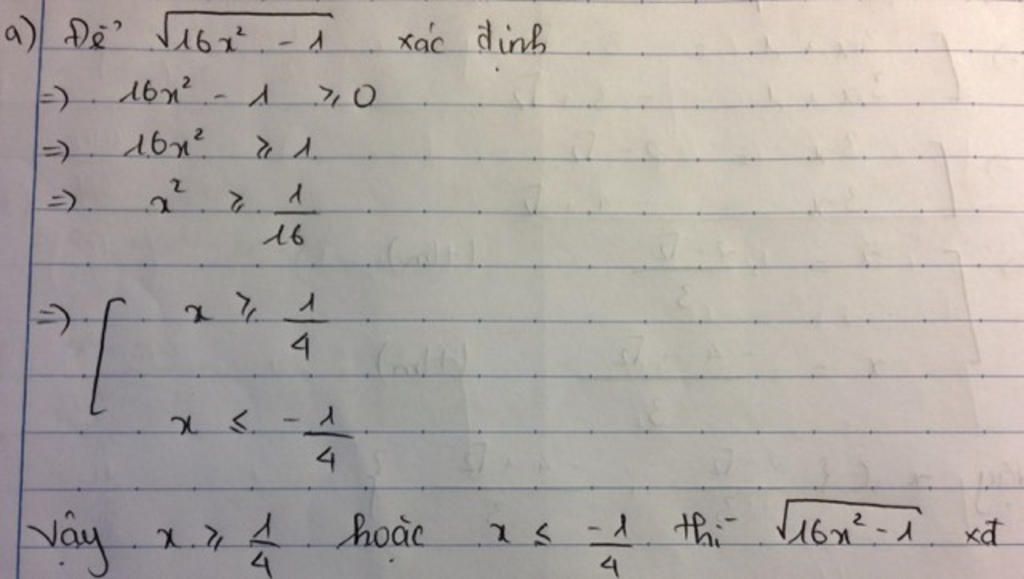 a) Để √(16x² - 1) xác định
=> 16x² - 1 ≥ 0
=> 16x² ≥ 1
=> x² ≥ 1/16
=> [ x ≥ 1/4
x ≤ -1/4
Vậy x ≥ 1/4 hoặc x ≤ -1/4 thì √(16x² - 1) xđ